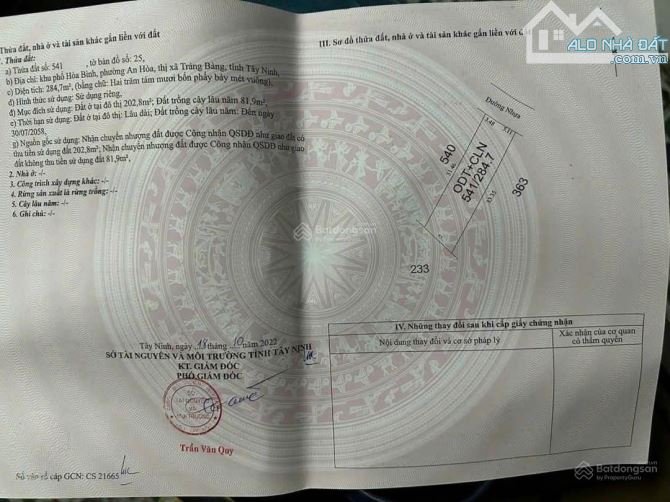 Thửa đất, nhà ở và tài sản khác gắn liền với đất
1. Thửa đất:
a) Thửa đất số: 541 , tờ bản đồ số: 25,
b) Địa chỉ: khu phố Hòa Bình, phường An Hòa, thị xã Trảng Bàng, tỉnh Tây Ninh,
c) Diện tích: 284,7m², (bằng chữ: Hai trăm tám mươi bốn phẩy bảy mét vuông),
d) Hình thức sử dụng: Sử dụng riêng,
đ) Mục đích sử dụng: Đất ở tại đô thị 202,8m²; Đất trồng cây lâu năm 81,9m²,
e) Thời hạn sử dụng: Đất ở tại đô thị: Lâu dài; Đất trồng cây lâu năm: Đến ngày
30/07/2058,
g) Nguồn gốc sử dụng: Nhận chuyển nhượng đất được Công nhận QSDĐ như giao đất có
thu tiền sử dụng đất 202,8m²; Nhận chuyển nhượng đất được Công nhận QSDĐ như giao
đất không thu tiền sử dụng đất 81,9m².
2. Nhà ở: -/-
3. Công trình xây dựng khác: -/-
4. Rừng sản xuất là rừng trồng: -/-
5. Cây lâu năm: -/-
6. Ghi chú: -/-
Tây Ninh, ngày 18 tháng 10 năm 2022
SỞ TÀI NGUYÊN VÀ MÔI TRƯỜNG TỈNH TÂY NINH
KT. GIÁM ĐỐC
PHÓ GIÁM ĐỐC
SỞ
TÀI NGUYÊN
VÀ
MÔI TRƯỜNG
Trần Văn Quy
Số vào sổ cấp GCN: CS 21665
III. Sơ đồ thửa đất, nhà ở và tài sản khác gắn liền với đất
ALO NHÀ ĐẤT
Đường Nhựa
3.48
540
ODT+CLN
541/284.7
363
233
IV. Những thay đổi sau khi cấp giấy chứng nhận
Nội dung thay đổi và cơ sở pháp lý
Xác nhận của cơ quan
có thẩm quyền
Batdongsan
by PropertyGuru
Batdongsan
by PropertyGuru